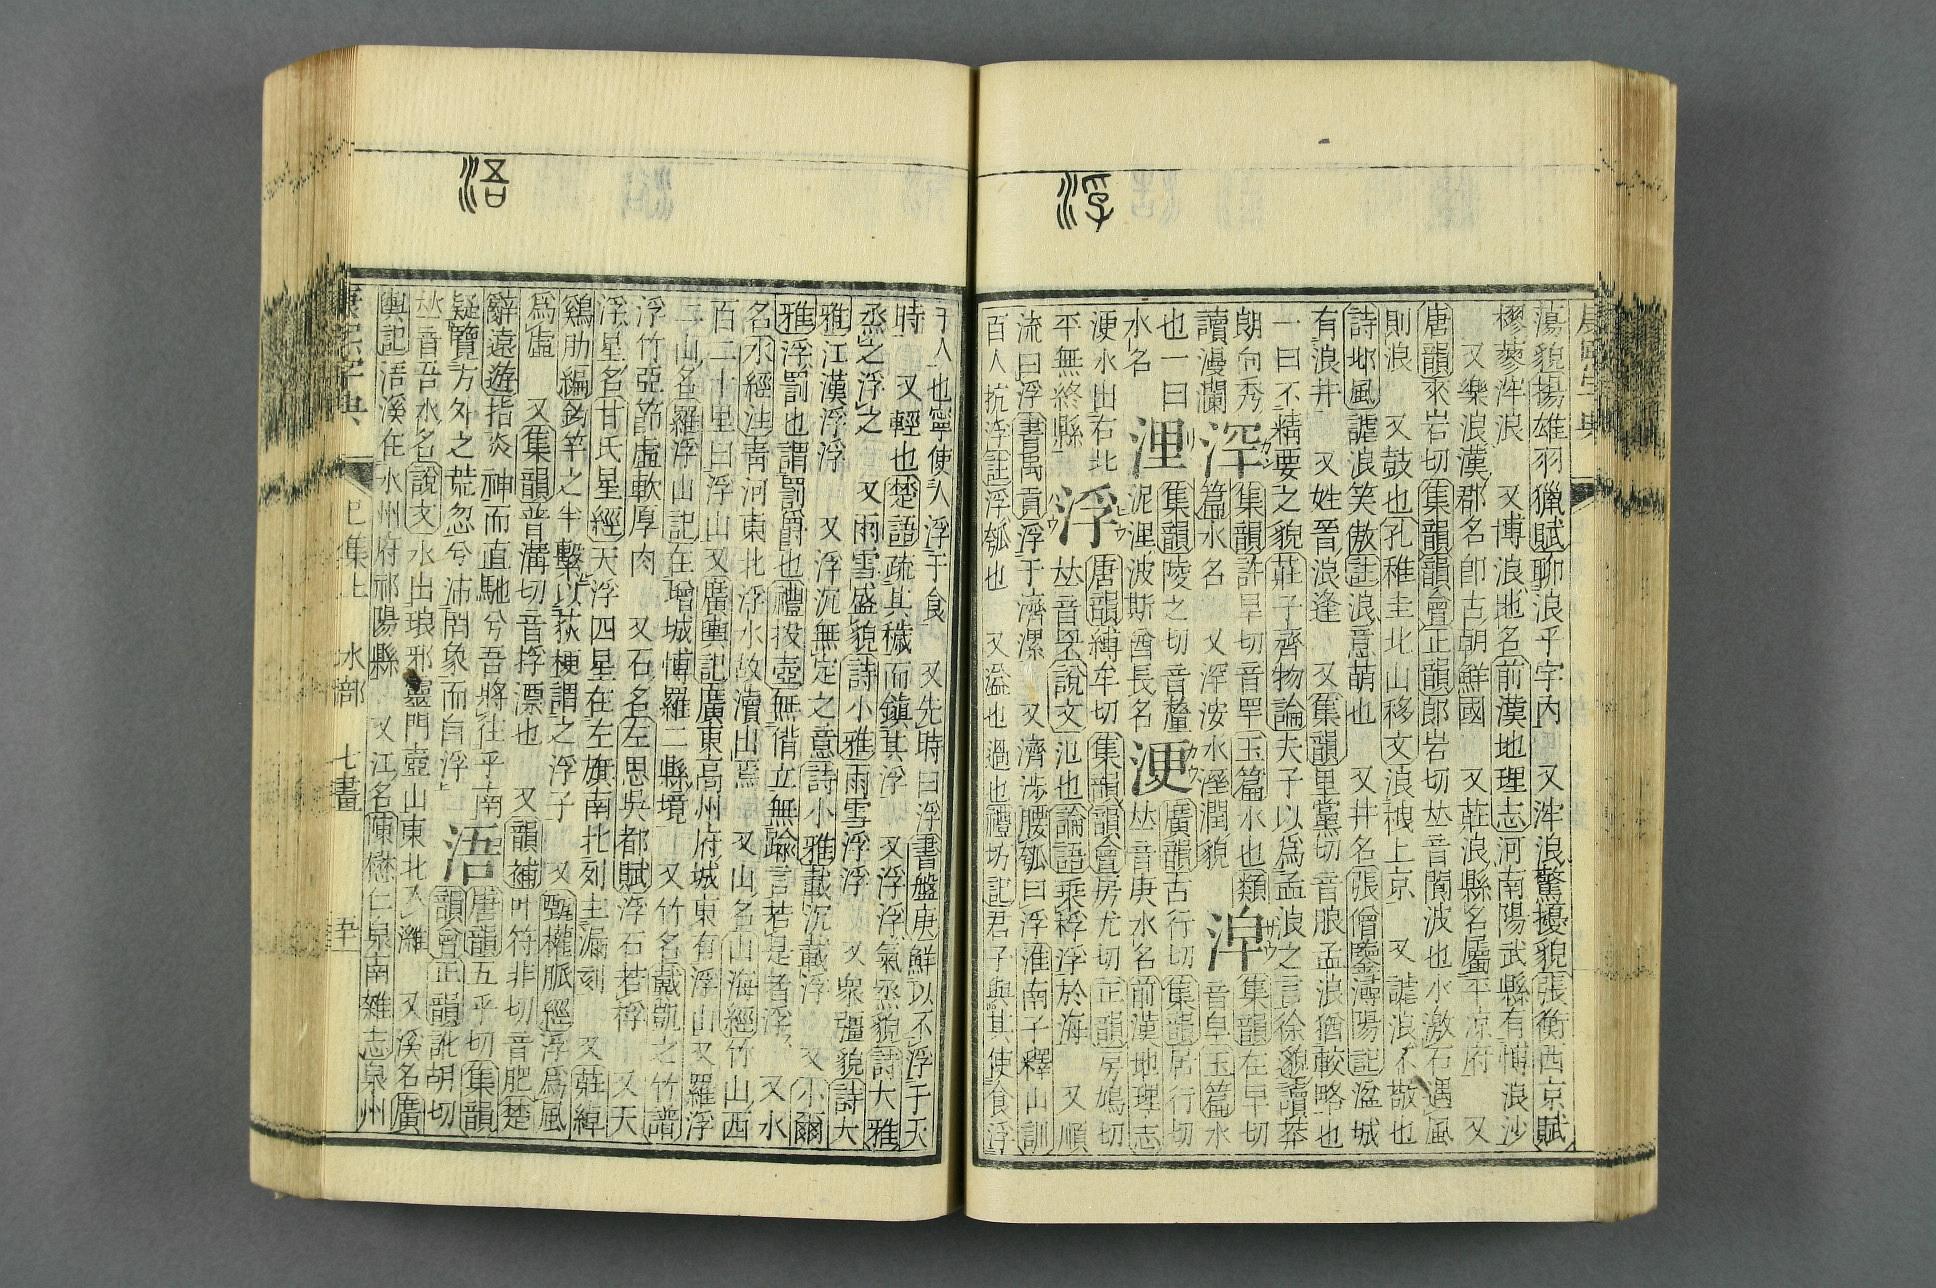 浮
蕩貌揚雄羽獵賦聊浪乎宇內 又浶浪驚擾貌張衡西京賦
摎蓼浶浪 又博浪地名前漢地理志河南陽武縣有博浪沙
又樂浪漢郡名卽古朝鮮國 又莊浪縣名屬平凉府 又
唐韻來宕切集韻韻會正韻郞宕切𠀤音閬波也水激石遇風
則浪 又鼓也孔稚圭北山移文浪栧上京 又謔浪不敬也
詩邶風謔浪笑傲註浪意萌也 又井名張僧鑒潯陽記湓城
有浪井 又姓晉浪逢 又集韻里黨切音朖孟浪猶較略也
一曰不精要之貌莊子齊物論夫子以爲孟浪之言徐邈讀莽
朗向秀讀漫瀾
涆 集韻許旱切音罕玉篇水也類篇水名 又涆浝水溼潤貌
淖 集韻在早切音皁玉篇水也一曰水名
浬 集韻陵之切音釐泥浬波斯酋長名
浭 廣韻古行切集韻居行切𠀤音庚水名前漢地理志浭水出右北平無終縣
浮 唐韻縛牟切集韻韻會房尤切正韻房鳩切𠀤音罘說文氾也論語乘桴浮於海 又順
流曰浮書禹貢浮于濟漯 又濟涉腰瓠曰浮淮南子釋山訓
百人抗浮註浮瓠也 又溢也過也禮坊記君子與其使食浮
于人也寧使人浮于食 又先時曰浮書盤庚鮮以不浮于天
時 又輕也楚語疏其穢而鎮其浮 又浮浮氣烝貌詩大雅
烝之浮之 又雨雪盛貌詩小雅雨雪浮浮 又衆彊貌詩大
雅江漢浮浮 又浮沉無定之意詩小雅載沉載浮 又小爾
雅浮罰也謂罰爵也禮投壺無偝立無踰言若是者浮 又水
名水經注淸河東北浮水故瀆出焉 又山名山海經竹山西
百二十里曰浮山又廣輿記廣東高州府城東有浮山又羅浮
二山名羅浮山記在增城博羅二縣境 又竹名戴凱之竹譜
浮竹亞節虛軟厚肉 又石名左思吳都賦浮石若桴 又天
浮星名甘氏星經天浮四星在左旗南北列主漏刻 又莊綽
鷄肋編釣竿之半繫以荻梗謂之浮子 又甄權脈經浮爲風
爲虛 又集韻普溝切音捊漂也 又韻補叶符非切音肥楚
辭遠遊指炎神而直馳兮吾將往乎南疑覽方外之荒忽兮沛罔象而自浮
浯 唐韻五乎切集韻韻會正韻訛胡切𠀤音吾水名說文水出琅邪靈門壺山東北入濰 又溪名廣
輿記浯溪在永州府祁陽縣 又江名陳懋仁泉南雜志泉州
康熙字典 巳集上 水部 七畫 五
浯